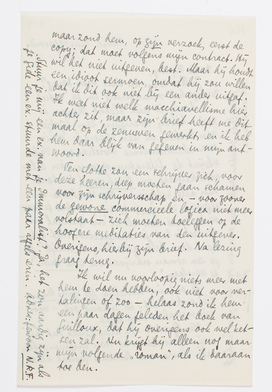 maar zond hem, op zijn verzoek, eerst de
copy; dat moet volgens mijn contract. Hij
wil het niet uitgeven, best. Maar hij houdt
een idioot sermoen, omdat hij zou willen
dat ik dit ook niet bij een ander uitgaf.
Ik weet niet welke macchiavellisme hier
achter zit, maar zijn brief heeft me dit
maal op de zenuwen gewerkt, en ik heb
hem daar blijk van gegeven in mijn ant-
woord.
Ten slotte zou een schrijver zich, voor
deze heeren, diep moeten gaan schamen
voor zijn schrijverschap en - voor zoover
de gewone commercieele logica niet meer
volstaat - zich moeten
hoogere meditaties van den uitgever.
Overigens, hierbij zijn brief. Na lezing
graag terug.
Ik wil nu voorloopig niets meer met
hem te doen hebben, ook niet voor ver-
talingen of zoo - helaas zond ik hem
een paar dagen geleden het boek van
Guilloux, dat hij overigens ook wel ket-
sen zal. Nu krijgt hij alleen nog maar
mijn volgende "roman", als ik daaraan
toe ben.
Stuur je mij een ex. van je Immoralist? Ik het zou aardig zijn als
je Gide een ex. stuurde met een paar regels erin. Adres: gewoon N.R.F.